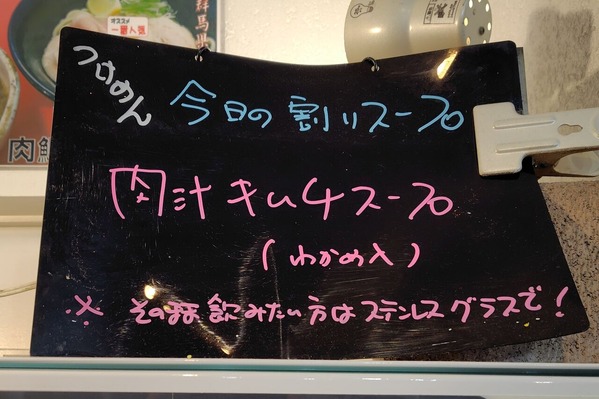 オススメ
一番人気
群馬
肉
つけめん
今日の割りスープ
肉汁キムチスープ
(わかめ入)
※ その〓飲みたい方はステンレスグラスで!